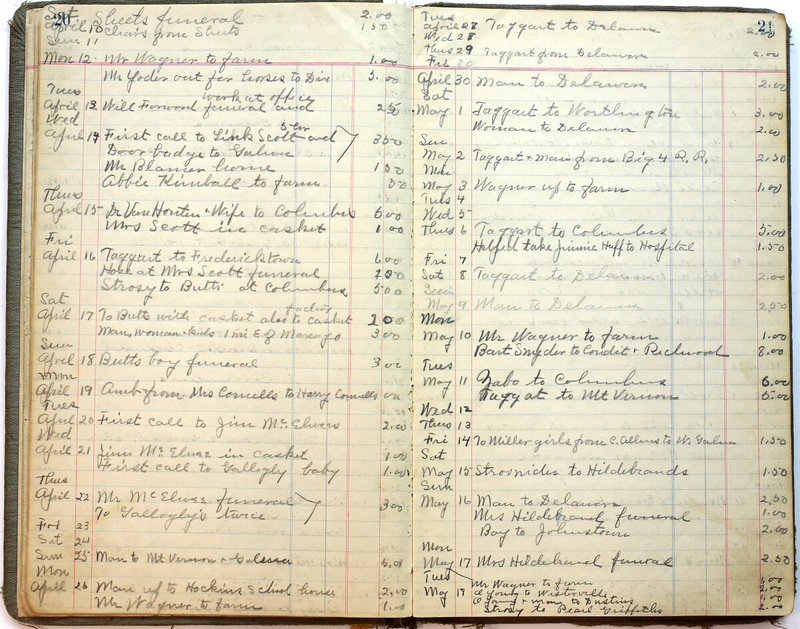 20
Sat Sheets funeral 2.00
April 10 Chairs from Sheets 1 50
Sun 11
Mon 12 Mr Wagner to farm 1.00
Mr Yoder out for horses to Div 3.00
Tues work at office
April 13 Will Forward funeral and 2 50
Wed
April 14 First call to Link Scott and 3 50
Door badge to Galena
Mr Blamer home 1 50
Abbie Kimball to farm 50
Thurs
April 15 Dr Van Houten + Wife to Columbus 5 00
Mrs Scott in casket 1 00
Fri
April 16 Taggart to Fredericktown 6 00
at Mrs Scott funeral 7 00
Strosy to Butts at Columbus 5 00
Sat factory
April 17 To Butts with casket also to casket 10 00
Man, Woman + kids to Marengo 3 00
Sun
April 18 Butts boy funeral 3 00
Mon
April 19 Amb from Mrs Cornells to Harry Cornells
Tues
April 20 First call to Jim McElwee 2.00
Wed
April 21 Jim McElwee in casket 1.00
First call to Gallogly baby 1.00
Thus
April 22 Mr McElwee funeral 3 00
To Gallogly's twice
Fri 23
Sat 24
Sun 25 Man to Mt Vernon + Galena 5.00
Mon
April 26 Man up to Hockins School house 2.00
Mr Wagner to farm 1.00
21
Tues
April 27 Taggart to Delaware 2.00
Wed 28
Thus 29 Taggart from Delaware 2.00
Fri 30
April 30 Man to Delaware 2.00
Sat
May 1 Taggart to Worthington 3.00
Woman to Delaware 2.00
Sun
May 2 Taggart + man from Big 4 R. R. 2.50
Mon
May 3 Wagner up to farm 1.00
Tues 4
Wed 5
Thus 6 Taggart to Columbus 5.00
Helped take Jimmie Huff to Hospital 1.50
Fri 7
Sat 8 Taggart to Delaware 2.00
Sun
May 9 Man to Delaware 2.50
Mon
May 10 Mr Wagner to farm 1.00
Bart Snyder to Condit + Richwood 8.00
Tues
May 11 Zabo to Columbus 6.00
Taggart to Mt Vernon 5.00
Wed 12
Thus 13
Fri 14 To Miller girls from C. Allens to W. Galena 1.50
Sat
May 15 Strosnider to Hildebrands 1.50
Sun
May 16 Man to Delaware 2.50
Mrs Hildebrand funeral 1.00
Boy to Johnstown 2.00
Mon
May 17 Mrs Hildebrand funeral 2.50
Tues Mr Wagner to farm 1.00
May 18 Young to Westerville 2.00
+ man to Dustins 1.00
Strosy to Pearl Griffiths 2.00